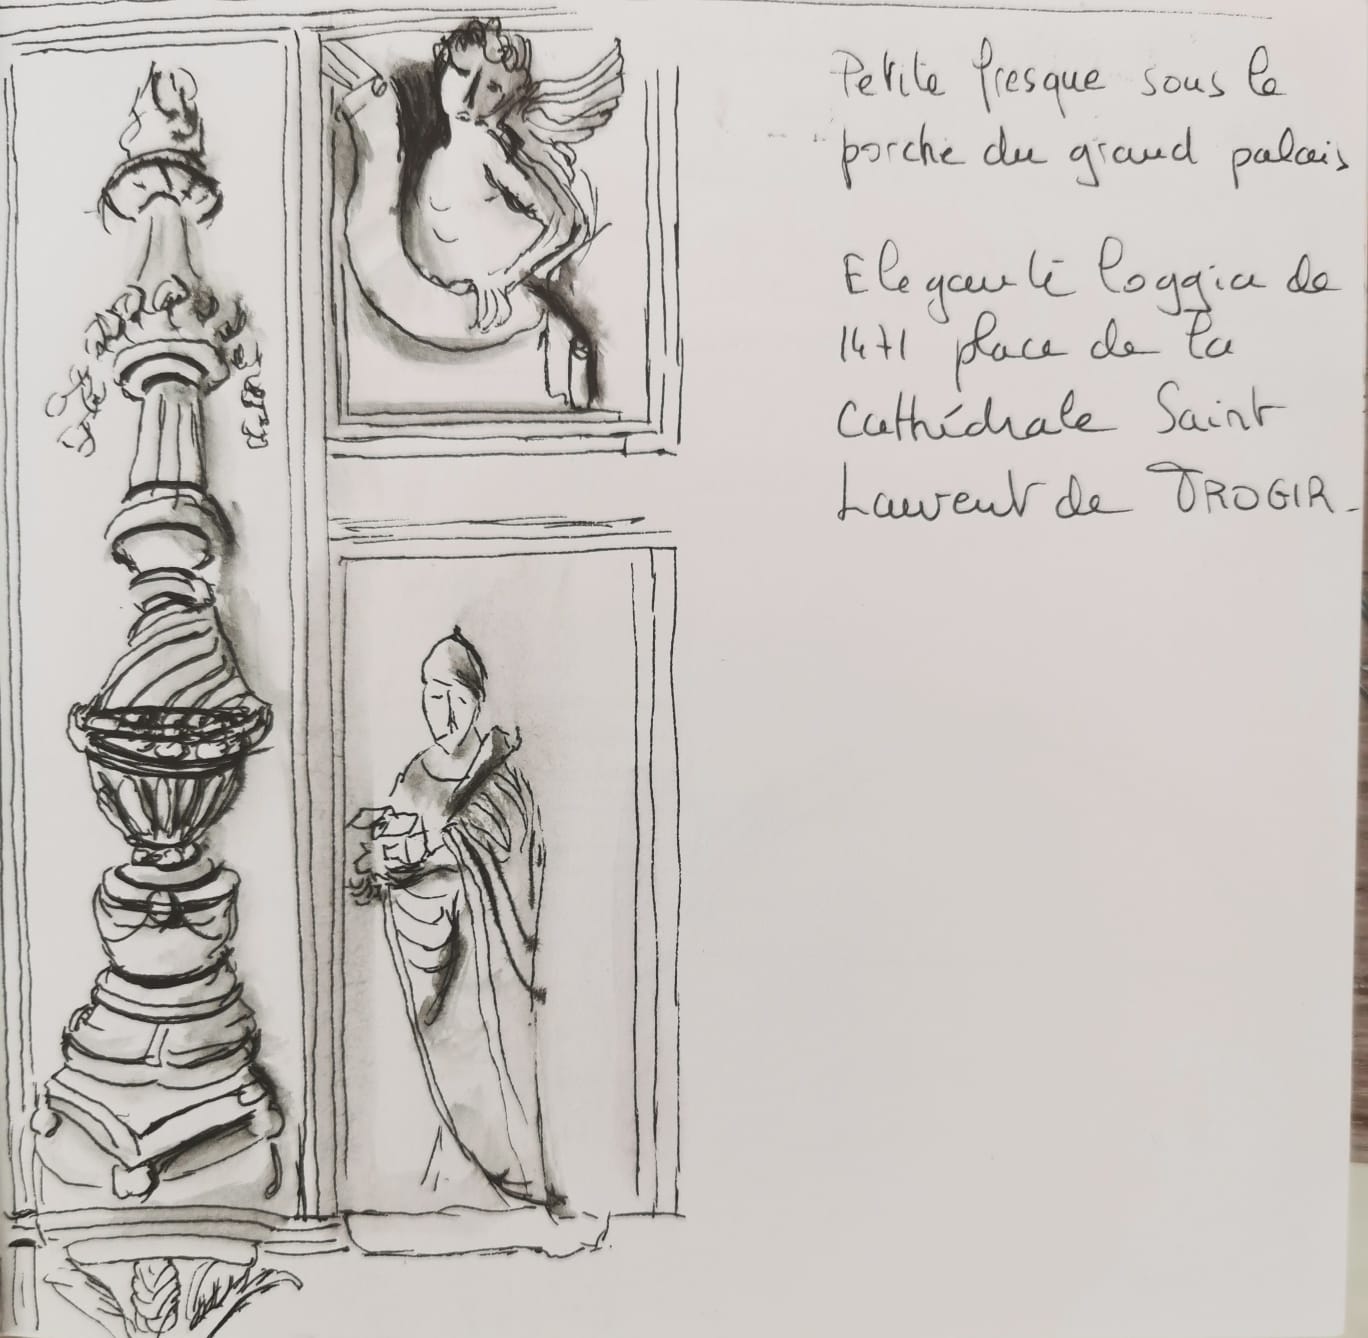 Petite fresque sous le
porche du grand palais
Elegante loggia de
1471 place de la
Cathédrale Saint
Laurent de TROGIR.